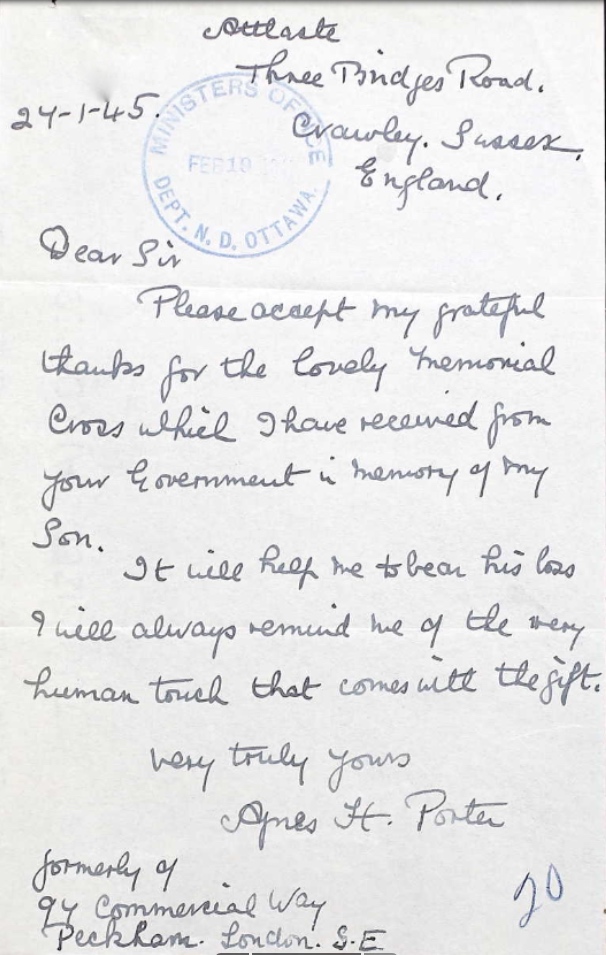 Attlaste
Three Bridges Road.
24-1-45.
Crawley. Sussex.
England.
MINISTERS OFFICE
FEB 19
DEPT. N. D. OTTAWA.
Dear Sir
Please accept my grateful
thanks for the lovely Memorial
Cross which I have received from
your Government in memory of my
Son.
It will help me to bear his loss
& will always remind me of the very
human touch that comes with the gift.
very truly yours
Agnes H. Porter
formerly of
94 Commercial Way
Peckham. London. S.E
20